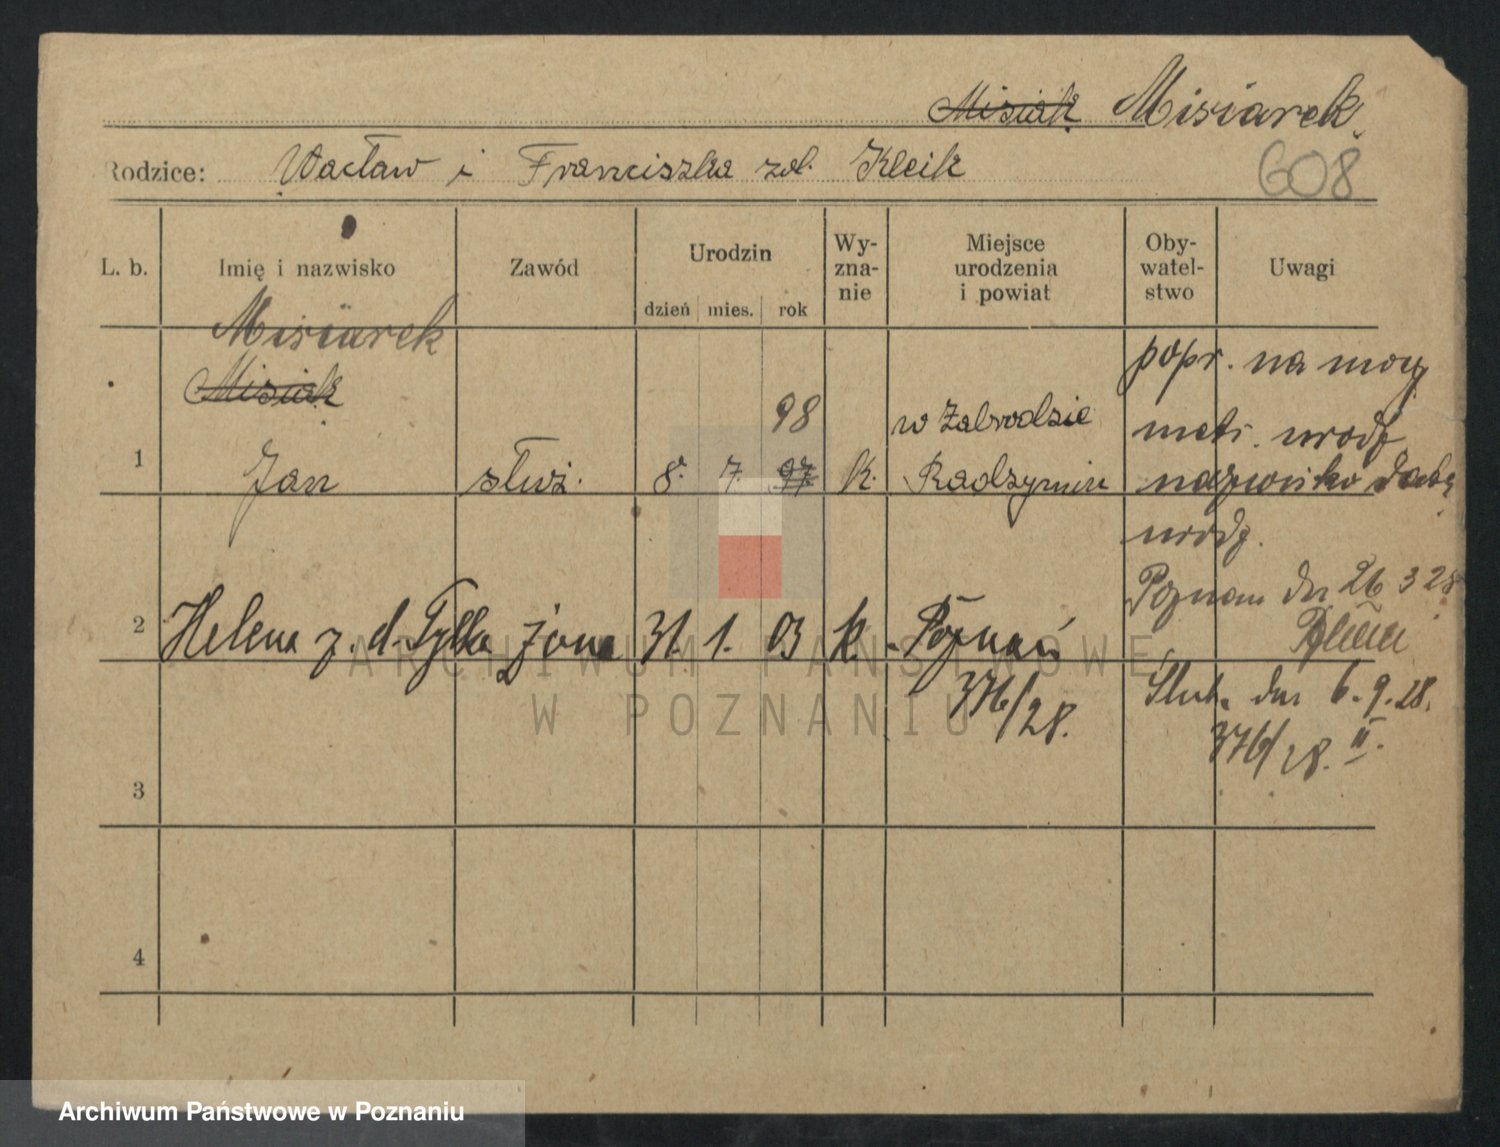 Misiak Misiarek
Rodzice: Wacław i Franciszka zd. Kleik
608
L. b. Imię i nazwisko Zawód Urodzin dzień mies. rok Wy-zna-nie Miejsce urodzenia i powiat Oby-watel-stwo Uwagi
Misiarek
Misiak
1 Jan służ. 8. 7. 97 98 k. w Zabrodzie
Radzymin
popr. na mocy
metr. urodz.
nazwisko i datę
urodz.
Poznań dn 26 3 28
2 Helena z. d. Tylka żona 31. 1. 03 k. Poznań
376/28.
Ślub. dn 6. 9. 28.
376/28. II.
3
4
ARCHIWUM PAŃSTWOWE
W POZNANIU
Archiwum Państwowe w Poznaniu